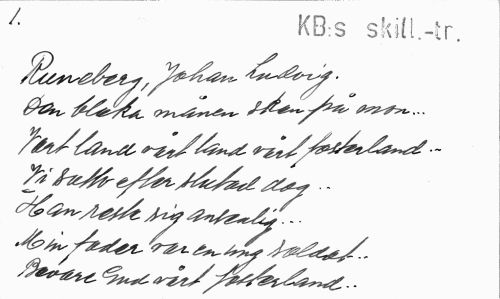 1.
KB:s skill.-tr.
Runeberg, Johan Ludvig.
Den bleka månen sken på mon...
Vårt land vårt land vårt fosterland..
Vi sutto efter slutad dag..
Han reste sig antenlig...
Min fader var en ung soldat..
Bevare Gud vårt fosterland..